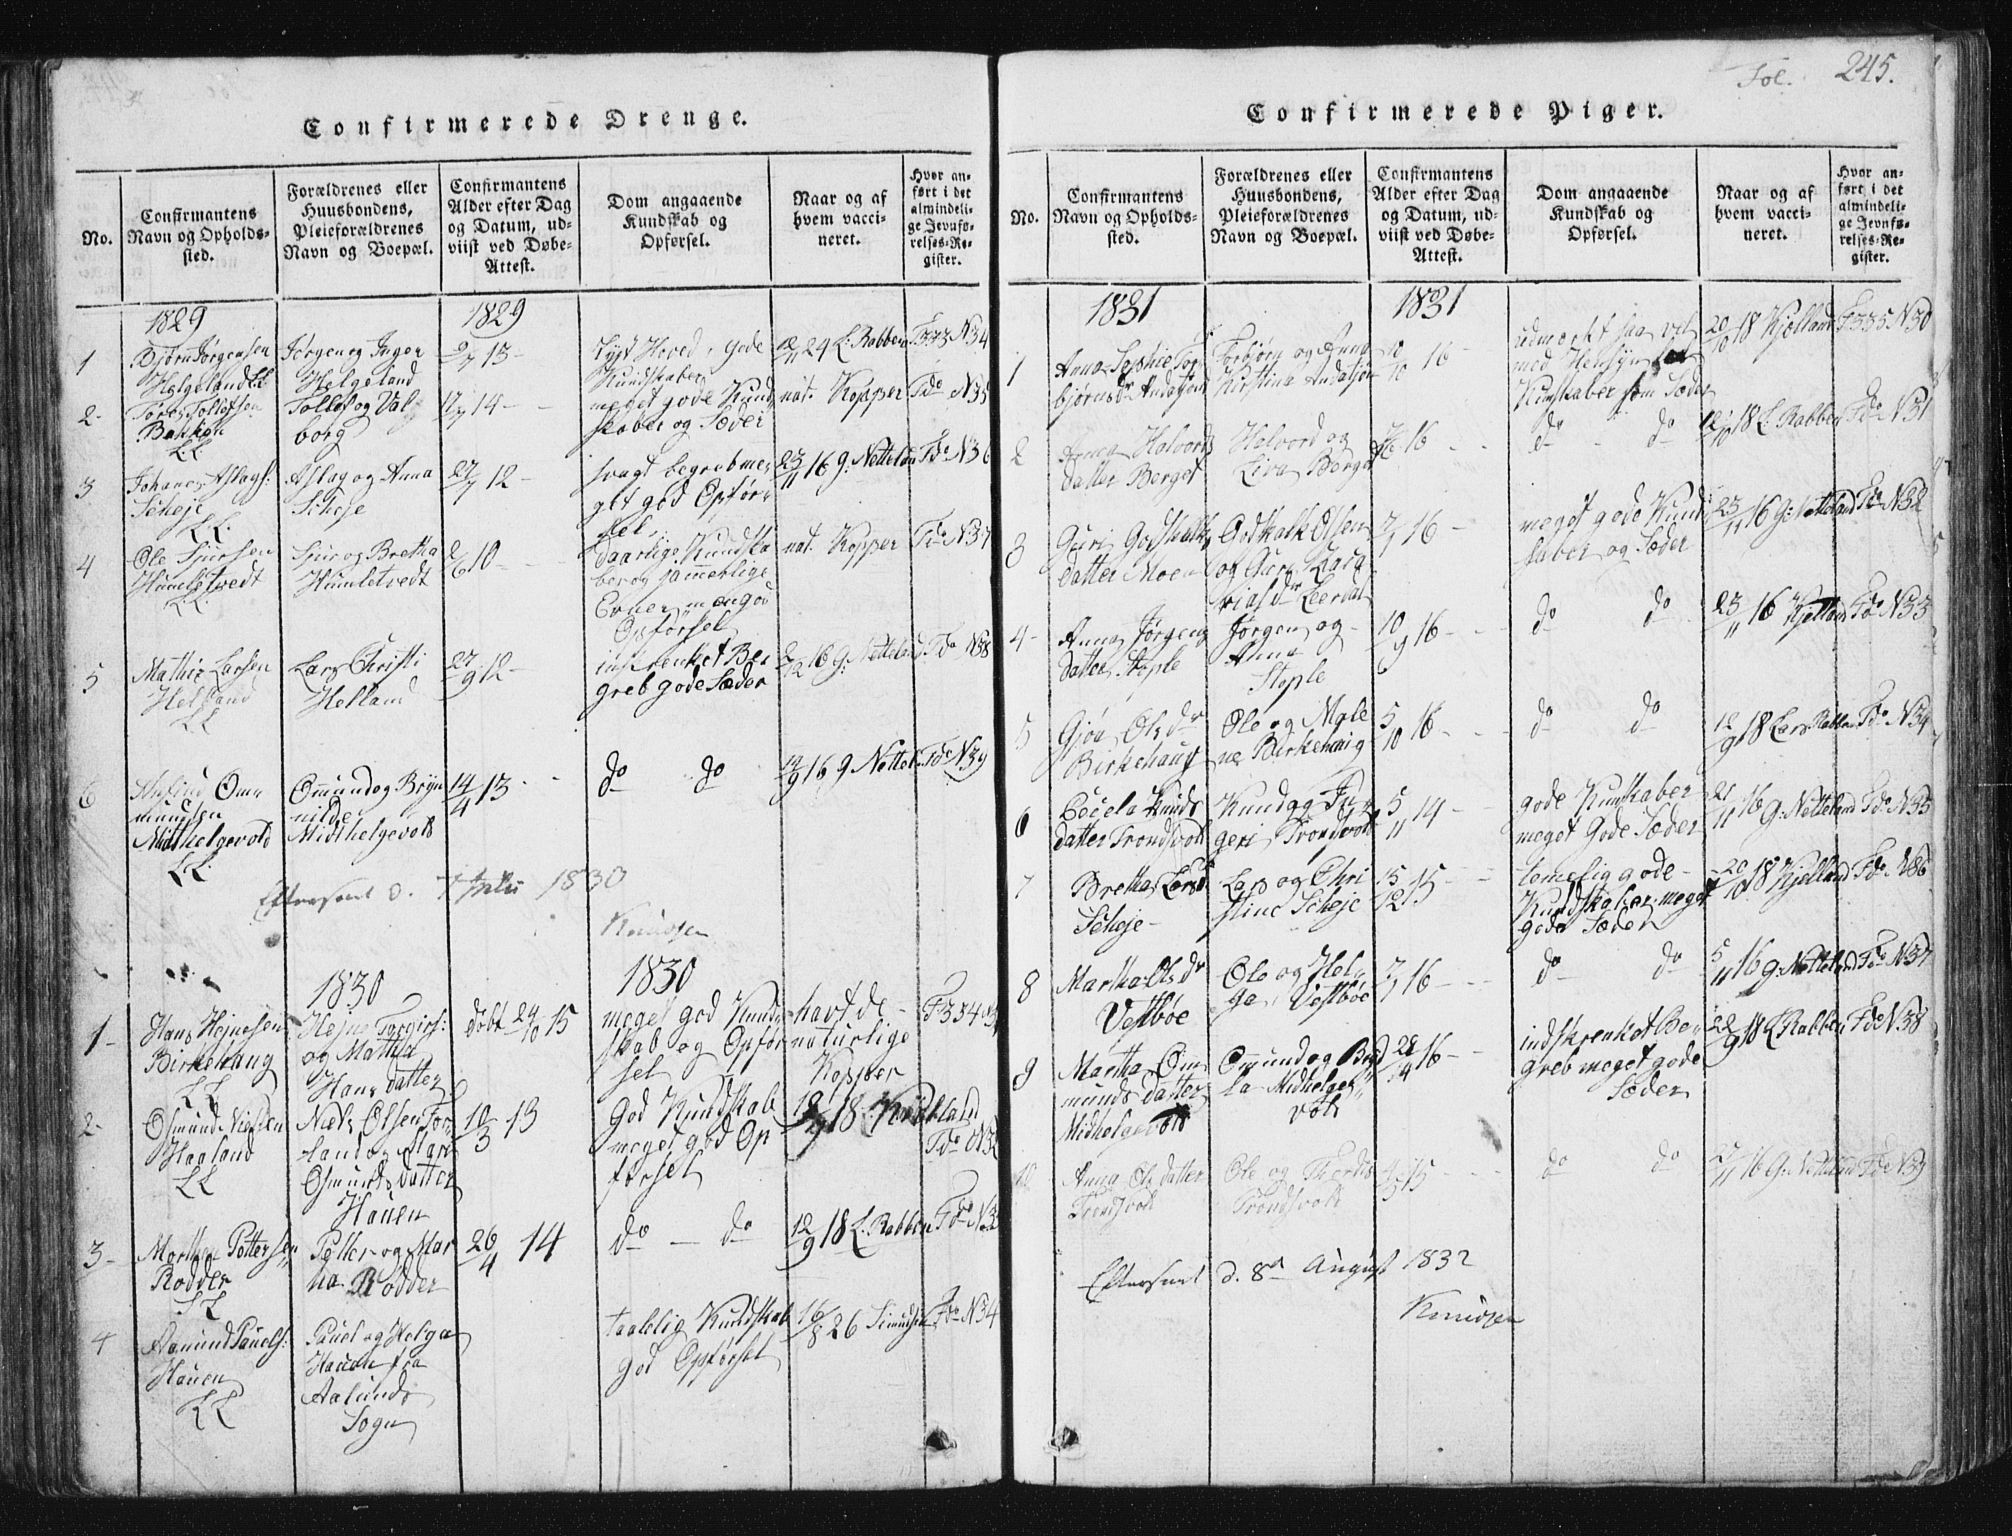 Confirmerede Drenge.
No.
Confirmantens
Navn og Opholds-
sted.
Forældrenes eller
Huusbondens,
Pleieforældrenes
Navn og Boepæl.
Confirmantens
Alder efter Dag
og Datum, ud-
viist ved Døbe-
Attest.
Dom angaaende
Kundskab og
Opførsel.
Naar og af
hvem vacci-
neret.
Hvor an-
ført i det
almindeli-
ge Jevnfø-
relses-Re-
gister.
1829
1829
1
Bjørn Jørgensen
Helgeland LL
Jørgen og Inger
Helgeland
15
Hoved, gode
Kundskaber
24 L. Rabben
F 333 N 34
2-
Tollefsen
Bakken
LL
Tollef og Val
borg
17/7 14
meget gode Kund
skaber og Sæder
nat. Kopper
Fdo N 35
3
Johanes Aslags:
Scheje
LL
Aslag og Anna
Scheje
27/7 12
svagt begreb me
get god Opfør
sel
23/11 16 G. Netteland
Fdo N 36
4
Ole Sjursen
Humletvedt
LL
Sjur og Bretha
Humletvedt
2/6 10
daarlige Kundska
ber og jammerlige
Evner men god
Opførsel
nat. Kopper
Fdo N 37
5
Mathis Larsen
Helland
LL
Lars Christi
Helland
27/9 12
inskrenket Be
greb gode Sæder
2/12 16 G. Netteland
Fdo N 38
6
Om
munsen
Midthelgevold
LL
Omund og Bryn
nilde
Midthelgevold
14/4 13
do do
14/9 16 G. Nettel
Fdo N 39
Efterseet d. 7 Julii 1830
Knudsen
1830
1830
1-
Hans Hejnesen
Birkehaug
LL
Hejne Torgirs:
og Martha
Hans datter
døbt 24/10 15
meget god Kund
skab og Opfør
sel
havt de
naturlige
Kopper
F 334 N 31
2-
Osmund Nielsen
Haaland
LL
Niels Olsen
land og
Osmunds datter
Hauen
10/3 13
God Kundskab
meget god Op
førsel
12/9 18
Fdo N 32
3-
Morthen Pettersen
Rødder
LL
Petter og Mar
tha Rødder
26/4 14
do - do
12/9 18 L. Rabben
Fdo N 33
4
Aamund Pauels:
Hauen
LL
Pauel og Helga
Hauen fra
Aalunds
Sogn
taalelig Kundskab
god Opførsel
16/8 26 Simudsen
Fdo N 34
Fol. 245.
Confirmerede Piger.
No.
Confirmantens
Navn og Opholds-
sted.
Forældrenes eller
Huusbondens,
Pleieforældrenes
Navn og Boepæl.
Confirmantens
Alder efter Dag
og Datum, ud-
viist ved Døbe-
Attest.
Dom angaaende
Kundskab og
Opførsel.
Naar og af
hvem vacci-
neret.
Hvor an-
ført i det
almindeli-
ge Jevnfø-
relses-Re-
gister.
1831
1831
1
Anna Sophie Tor
bjørnsdr Andatjøn
Torbjørn og Anna
Kirstina Andatjøn
16
udmerket saa vel
med Hensyn til
Kunskaber som Sæder
20/10 18 Kjelland
F 335 N 30
2
Anna Halvords
datter Berget
Halvord og
Liva Berget
16
do do
12/10 18 L. Rabben
Fdo N 31
3
Guri Godskalks
datter Moen
Godskalk Olsen
og Guri Zaca
riasdr Leerdal
7/7 16
meget gode Kund
skaber og Sæder
23/11 16 G. Netteland
Fdo N 32
4-
Anna Jørgens
datter Stople
Jørgen og
Anna
Stople
10/9 16
do do
23/11 16 Kjelland
Fdo N 33
5
Gjøa Olsdr
Birkehaug
Ole og Male
ne Birkehaug
5/10 16
do do
12/9 18 Lars Rabben
Fdo N 34
6
Cecela Knuds
datter Trondsvold
Knud og In
geri Trondsvold
5/11 14
gode Kunskaber
meget Gode Sæder
21/11 16 G. Netteland
Fdo N 35
7
Bretha Larsd
Scheje
Lars og Chri
stine Scheje
15/12 15
temelig gode
Kundskaber meget
gode Sæder
20/10 18 Kjelland
Fdo N 36
8
Martha Olsdr
Vestbøe
Ole og Hel
ga Vestbøe
7/7 16
do do
5/11 16 G. Netteland
Fdo N 37
9
Martha Om
munds datter
Midhelgevold
Ommund og
la Midhelge
vold
16
indskrenket Be
greb meget gode
Sæder
22/9 18 L. Rabben
Fdo N 38
10
Anna Ols datter
Trondsvold
Ole og Thordis
Trondsvold
15
do do
16 G. Netteland
Fdo N 39
Efterseet d. 8de August 1832
Knudsen